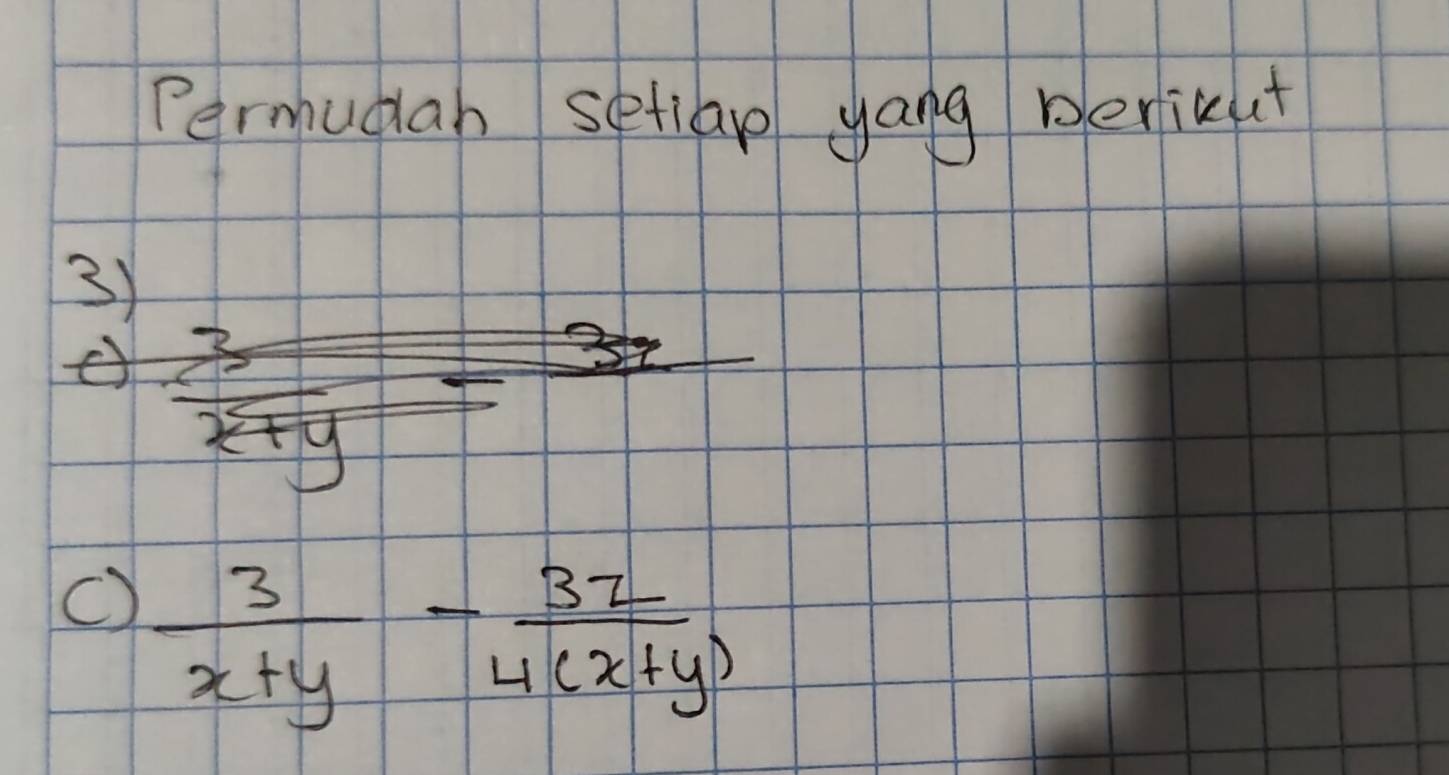 Permudah setiap yang berikut
3)
c) 3/x+y - 3z
c) 3/x+y - 3z/4(x+y)